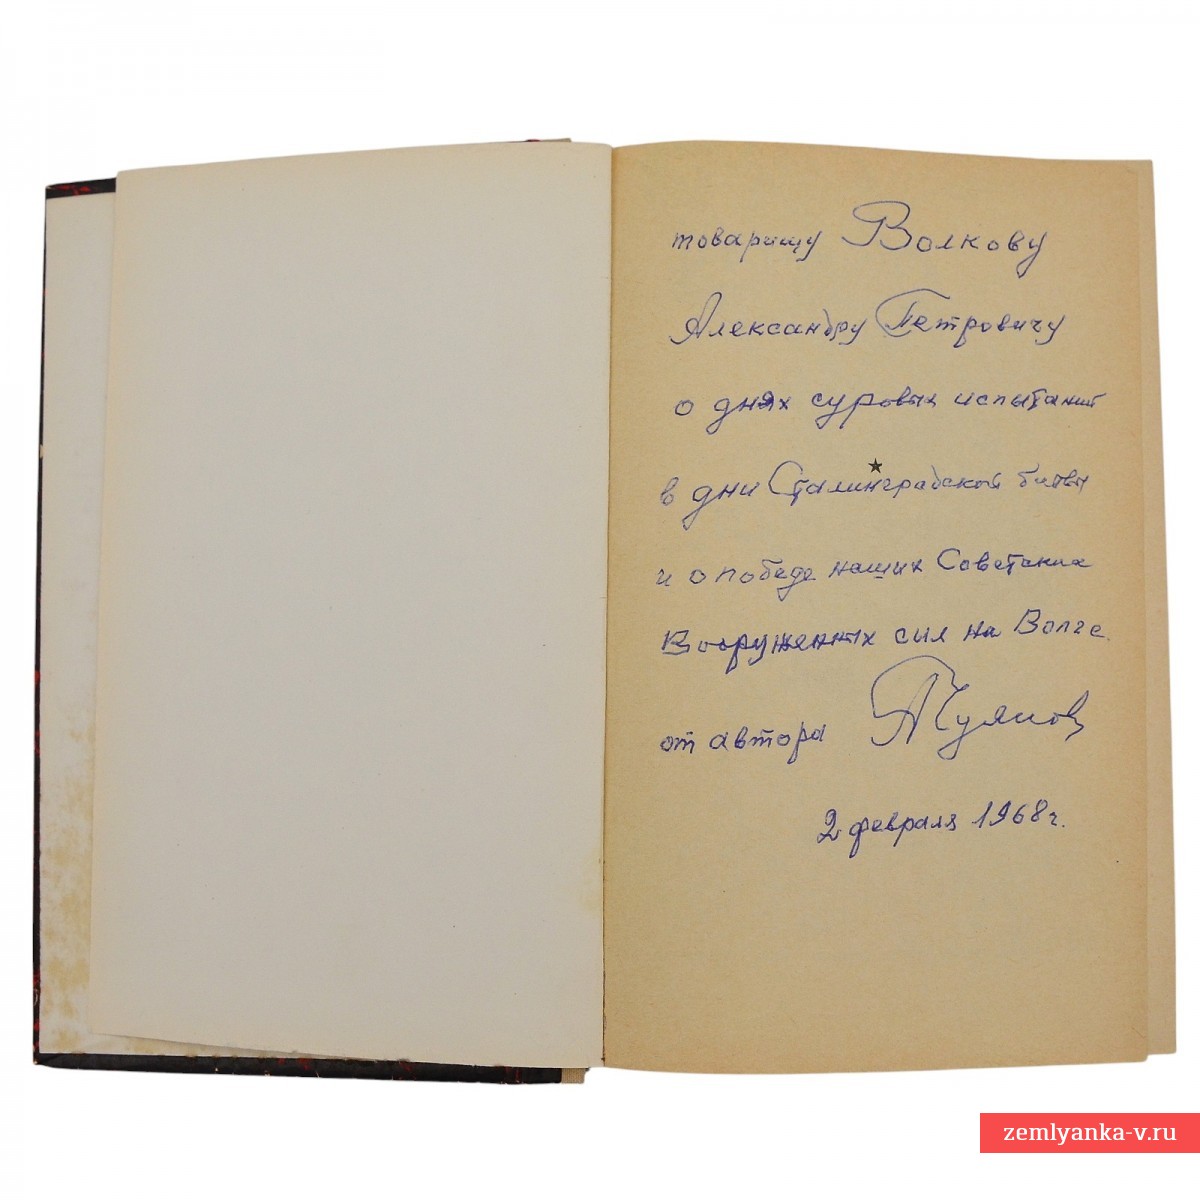 товарищу Волкову
Александру Петровичу
о днях суровых испытаний
в дни Сталинградской битвы
и о победе наших Советских
Вооруженных сил на Волге.
от автора АЧуянов
2 февраля 1968 г.
zemlyanka-v.ru